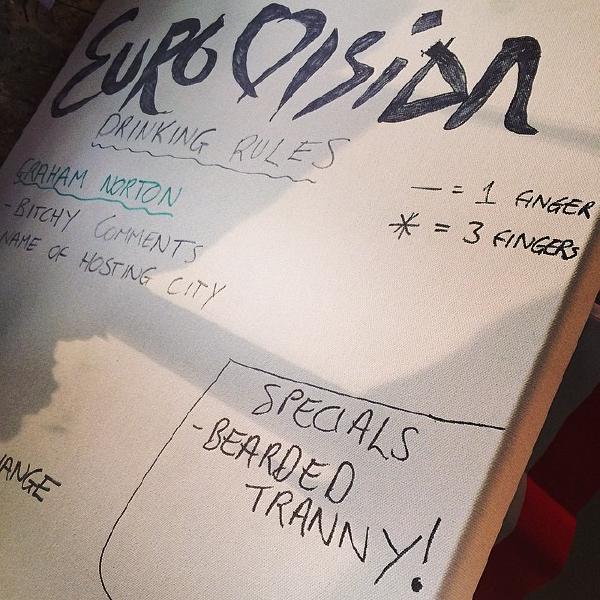 EUROVISION
DRINKING RULES
GRAHAM NORTON
- BITCHY COMMENTS
NAME OF HOSTING CITY
— = 1 FINGER
* = 3 FINGERS
SPECIALS
- BEARDED
TRANNY!